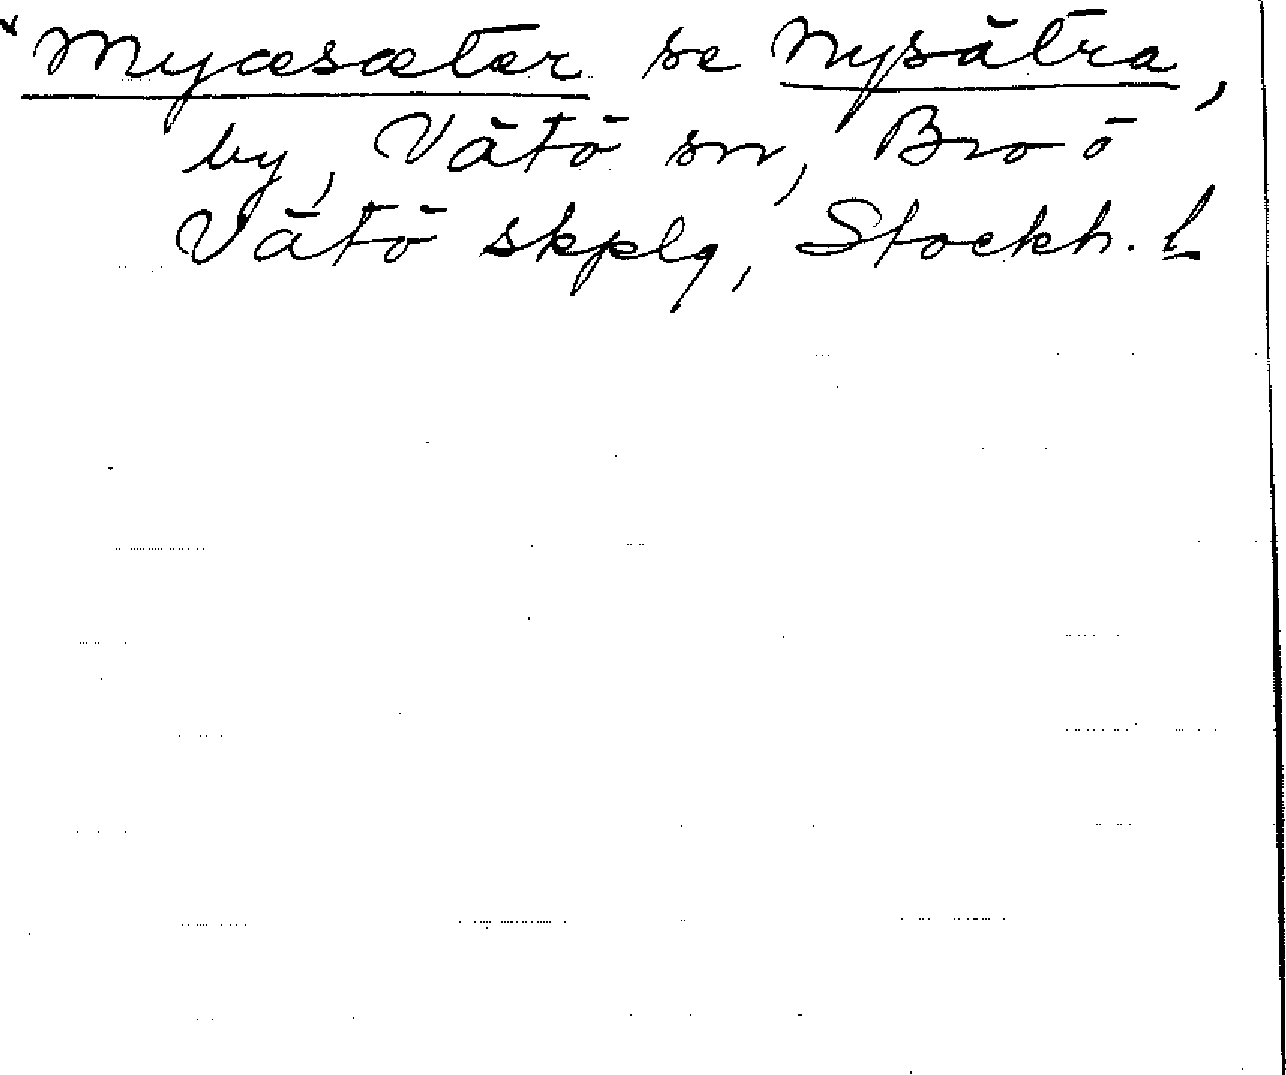 Myæsæter se Nysätra,
by, Vätö sn, Bro o
Vätö skplg, Stockh. l